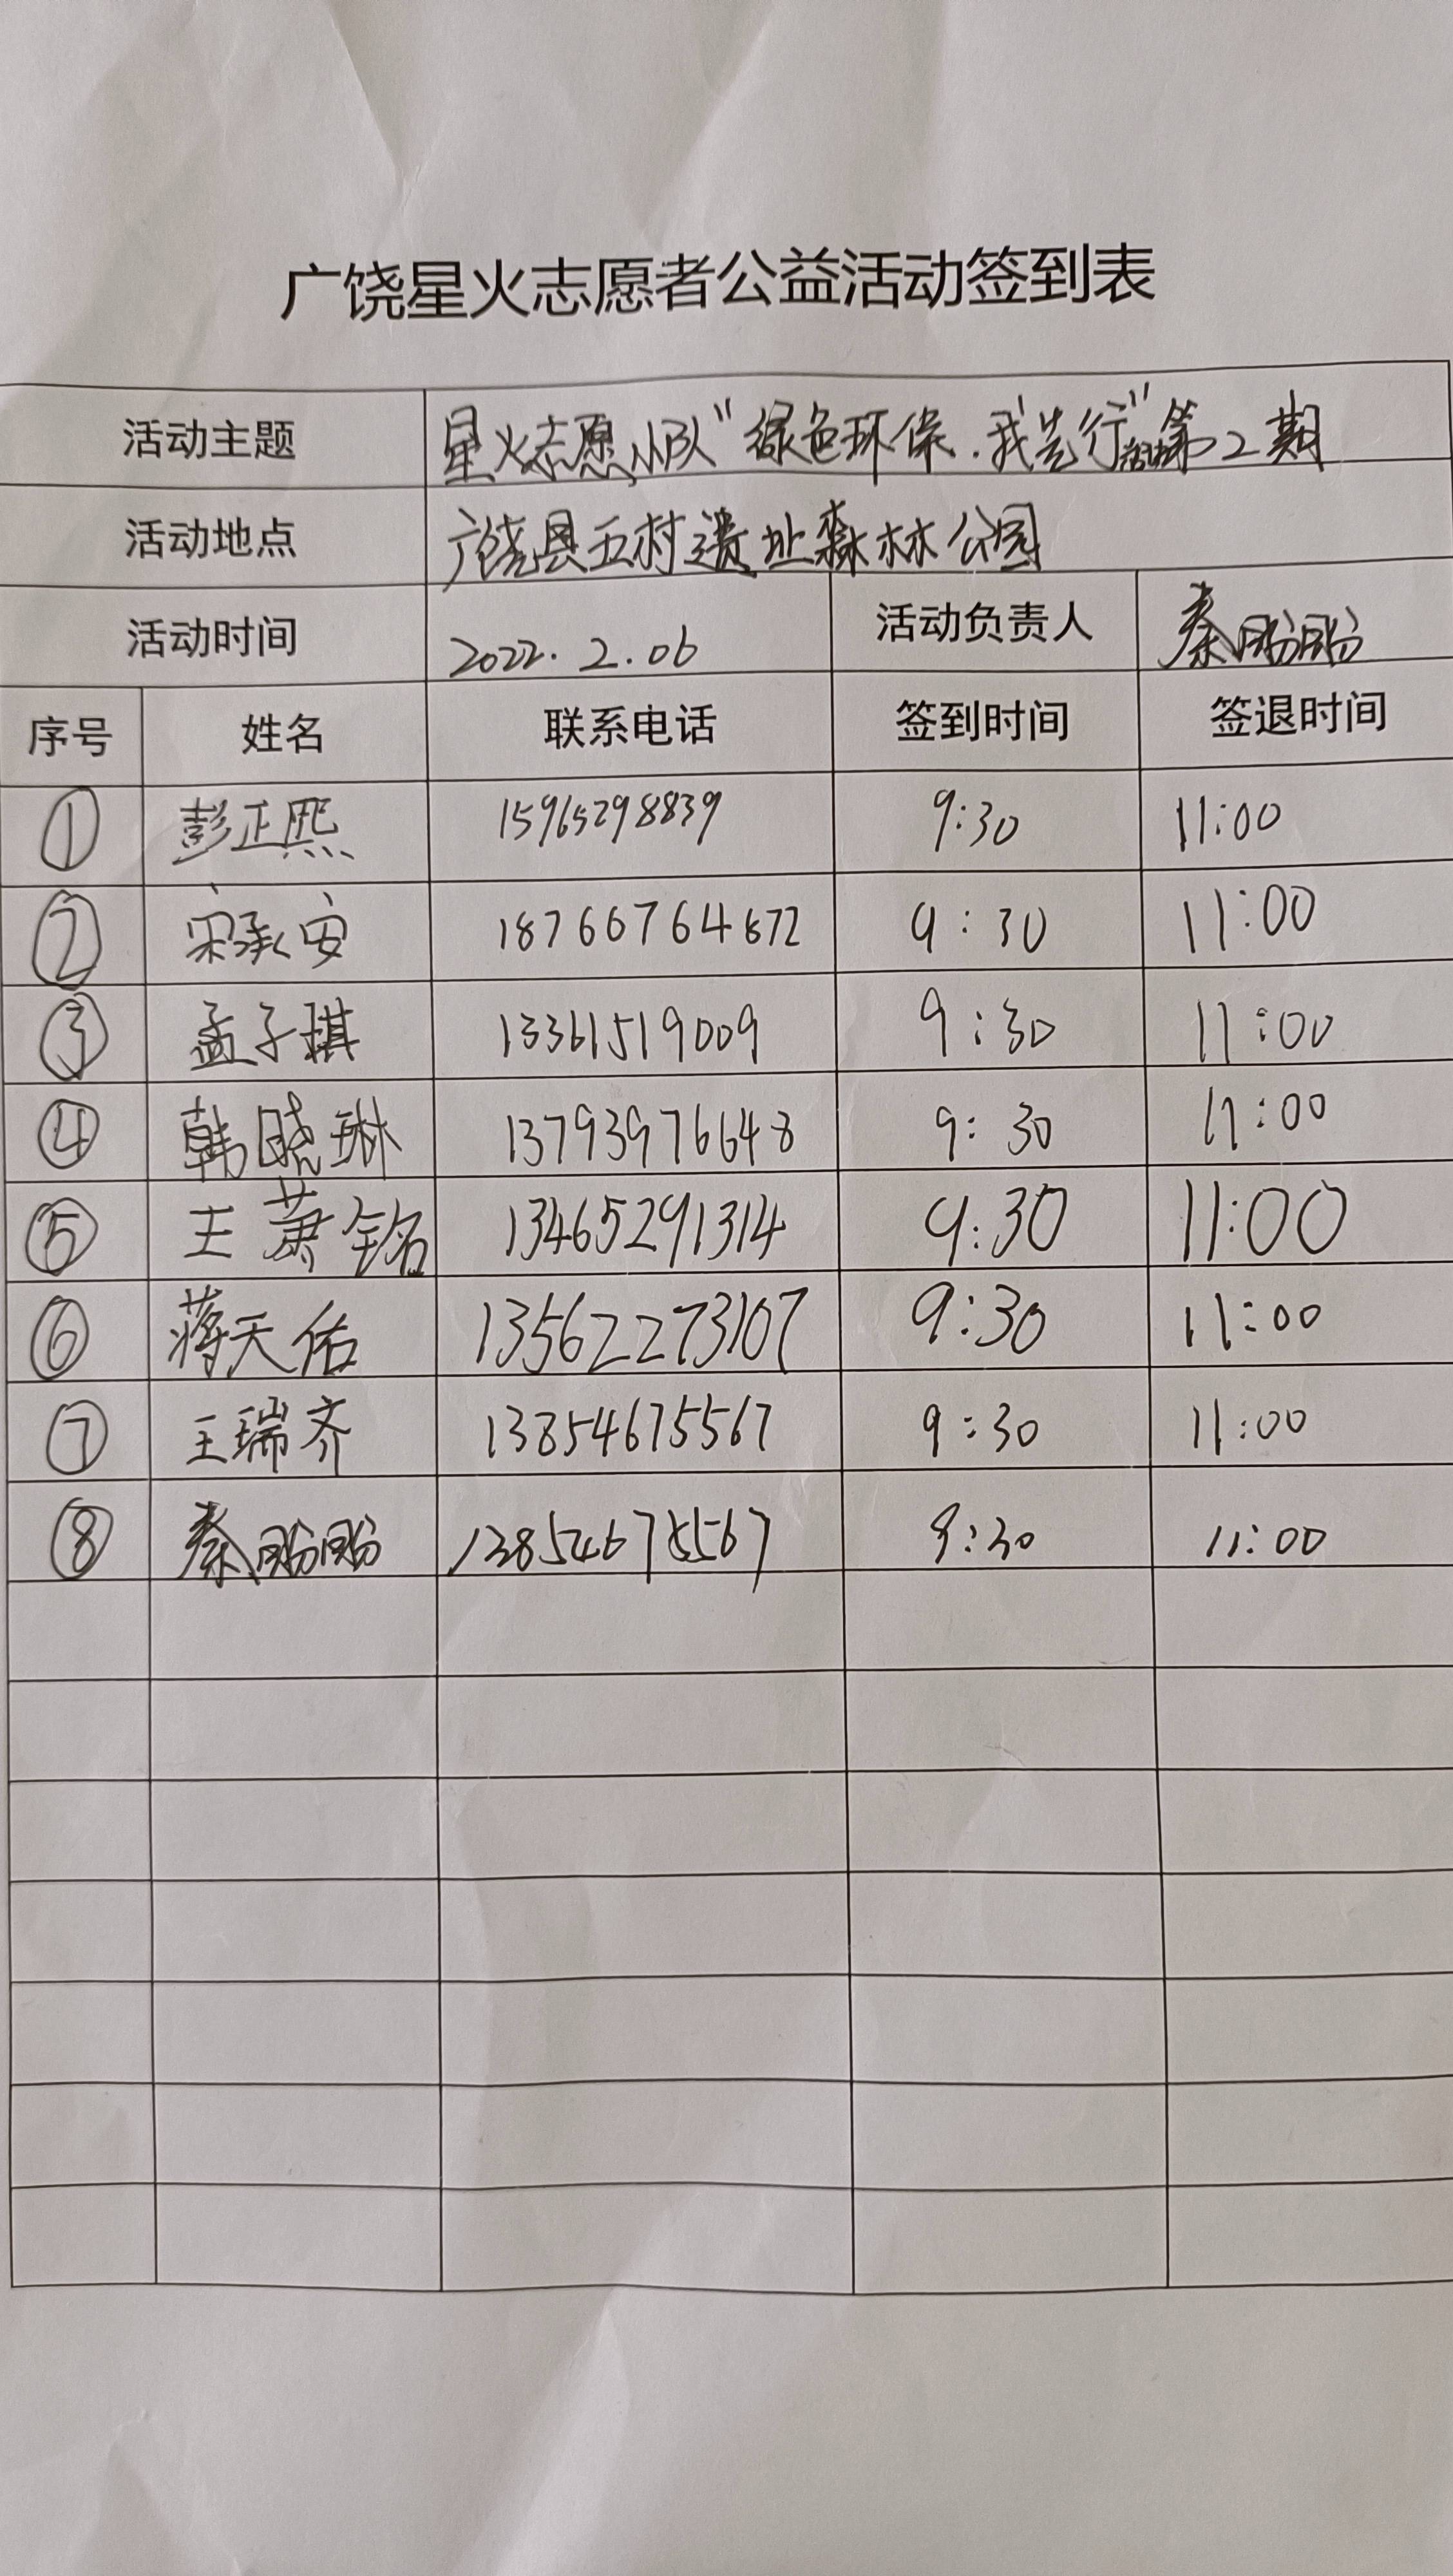 广饶星火志愿者公益活动签到表
活动主题 星火志愿小队"绿色环保.我先行"活动第2期
活动地点 广饶县五村遗址森林公园
活动时间 2022.2.06 活动负责人 秦盼盼
序号 姓名 联系电话 签到时间 签退时间
① 彭正熙 15965298839 9:30 11:00
② 宋承安 18766764672 9:30 11:00
③ 孟子琪 13361519009 9:30 11:00
④ 韩晓琳 13793976648 9:30 11:00
⑤ 王萧铭 13465291314 9:30 11:00
⑥ 蒋天佑 13562273107 9:30 11:00
⑦ 王瑞齐 13854675567 9:30 11:00
⑧ 秦盼盼 13854675567 9:30 11:00